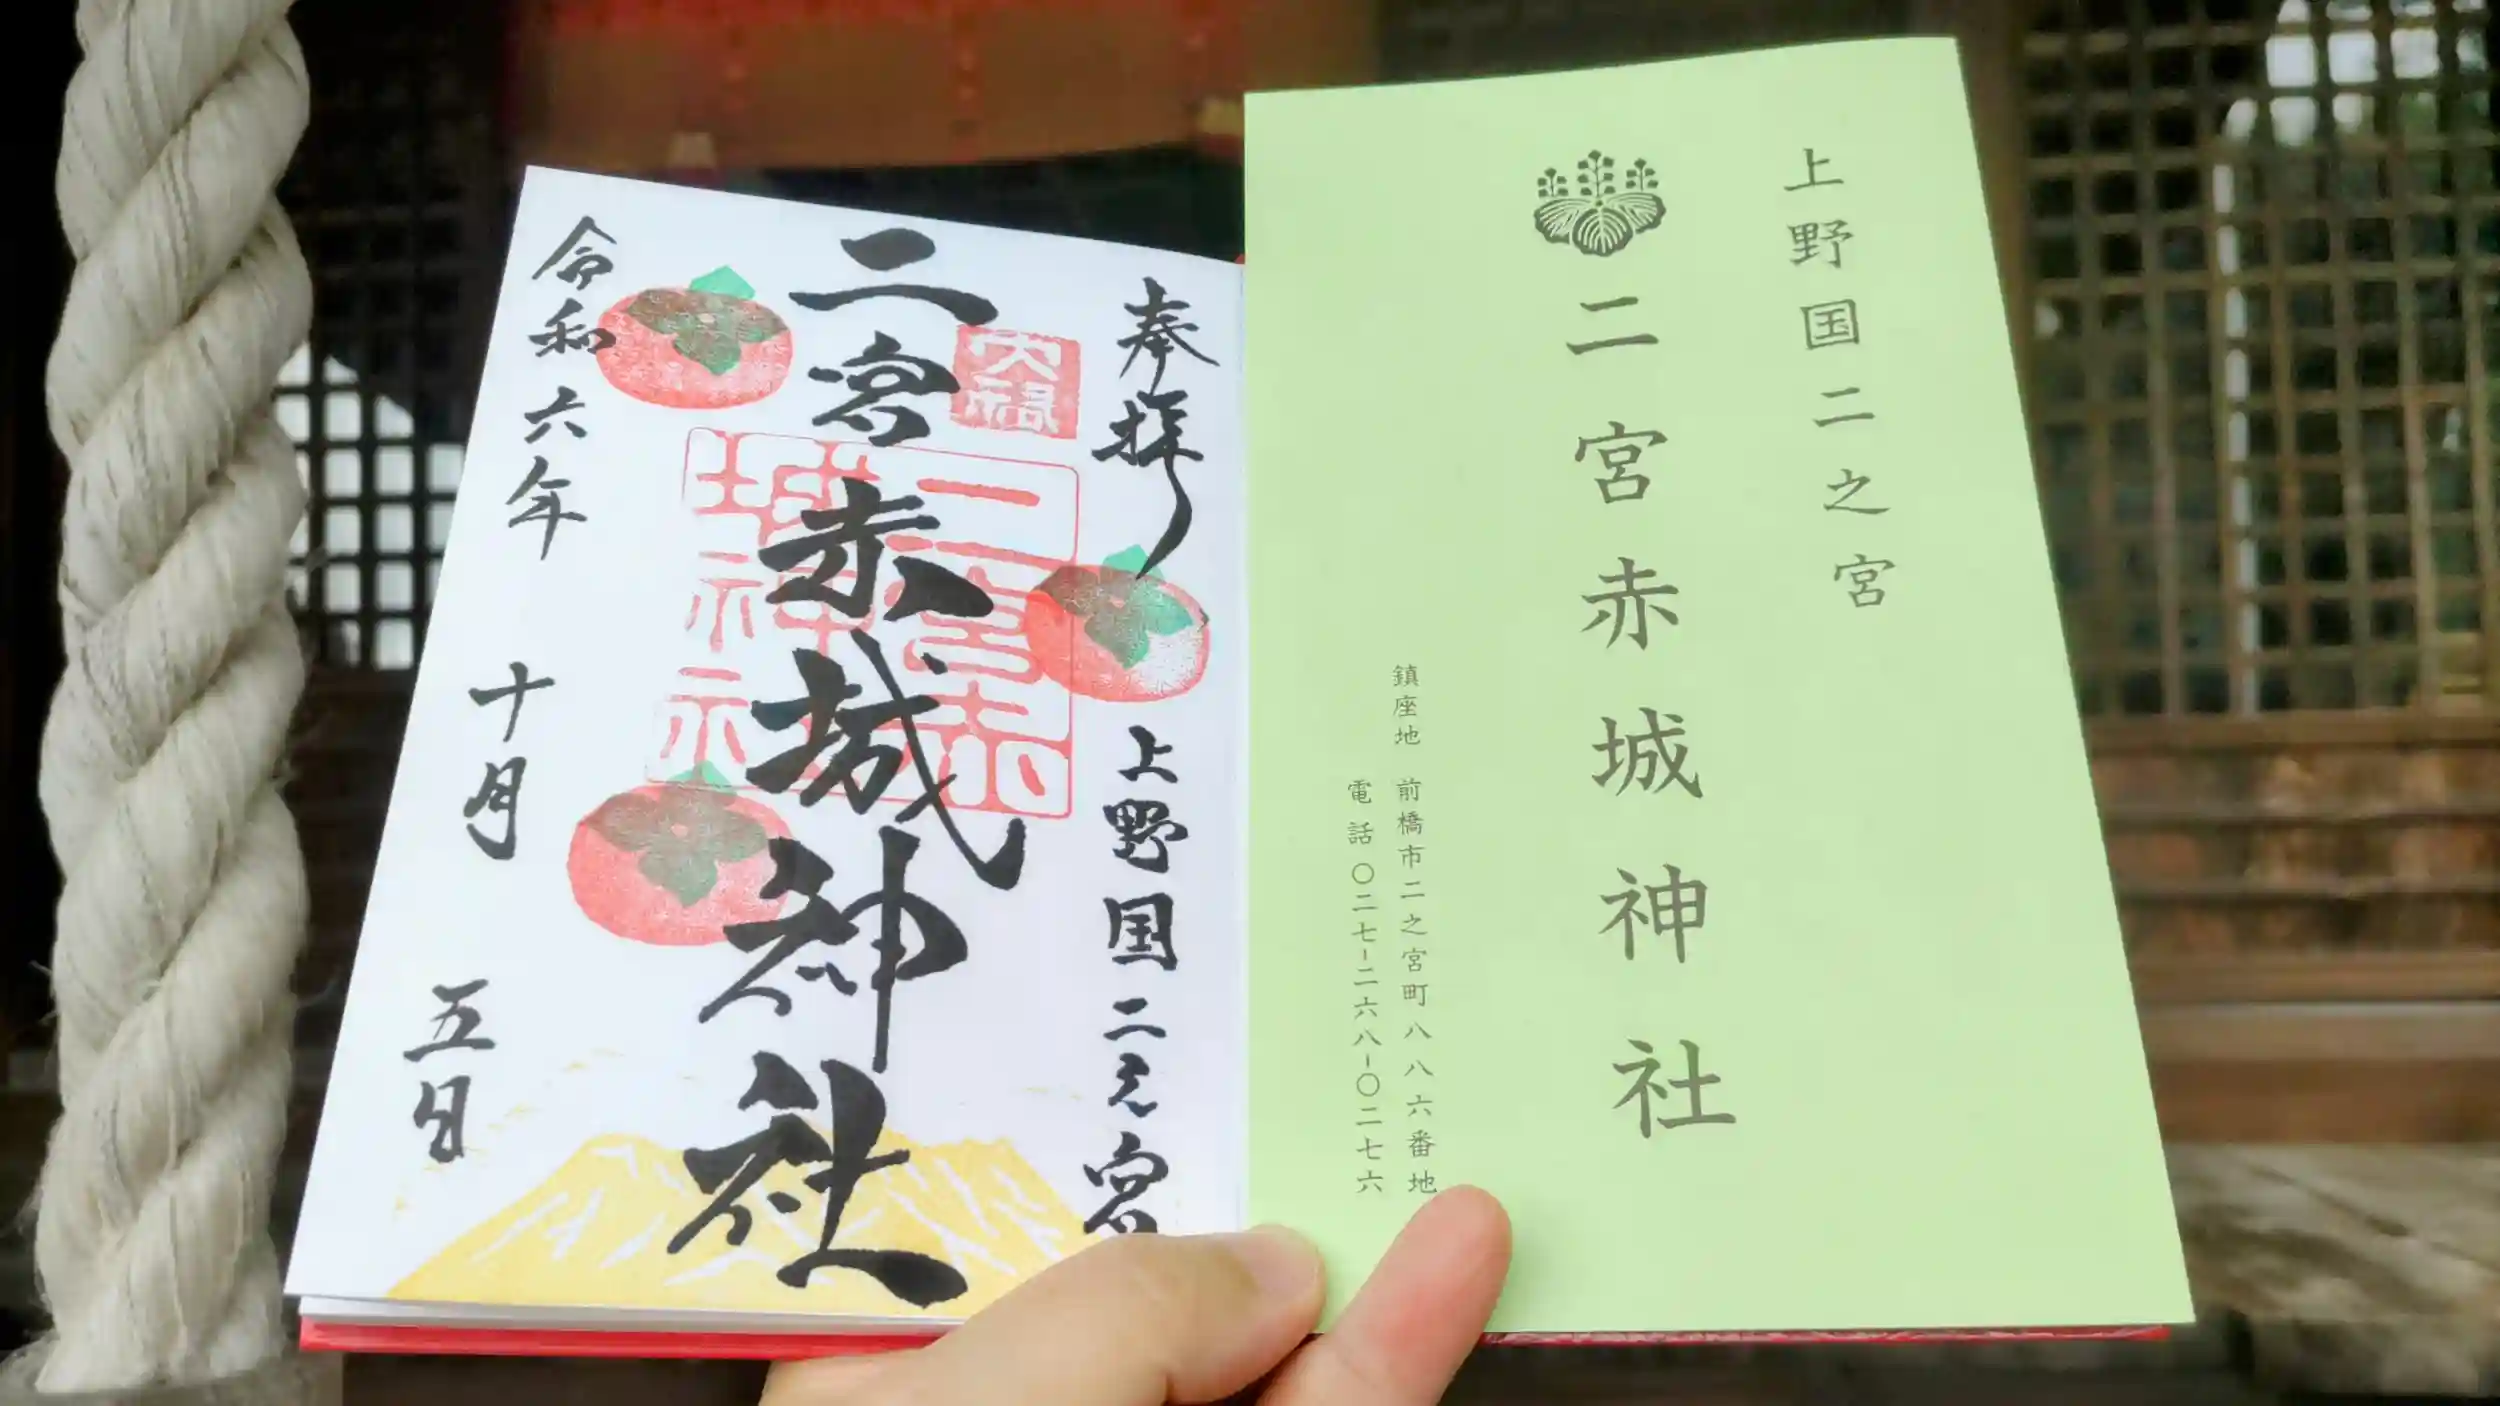 上野国二之宮
二宮赤城神社
鎮座地 前橋市二之宮町八八六番地
電話 〇二七-二六八-〇二七六
奉拝
上野国二之宮
大福
二宮赤城神社
二宮赤
城神社
令和六年 十月 五日